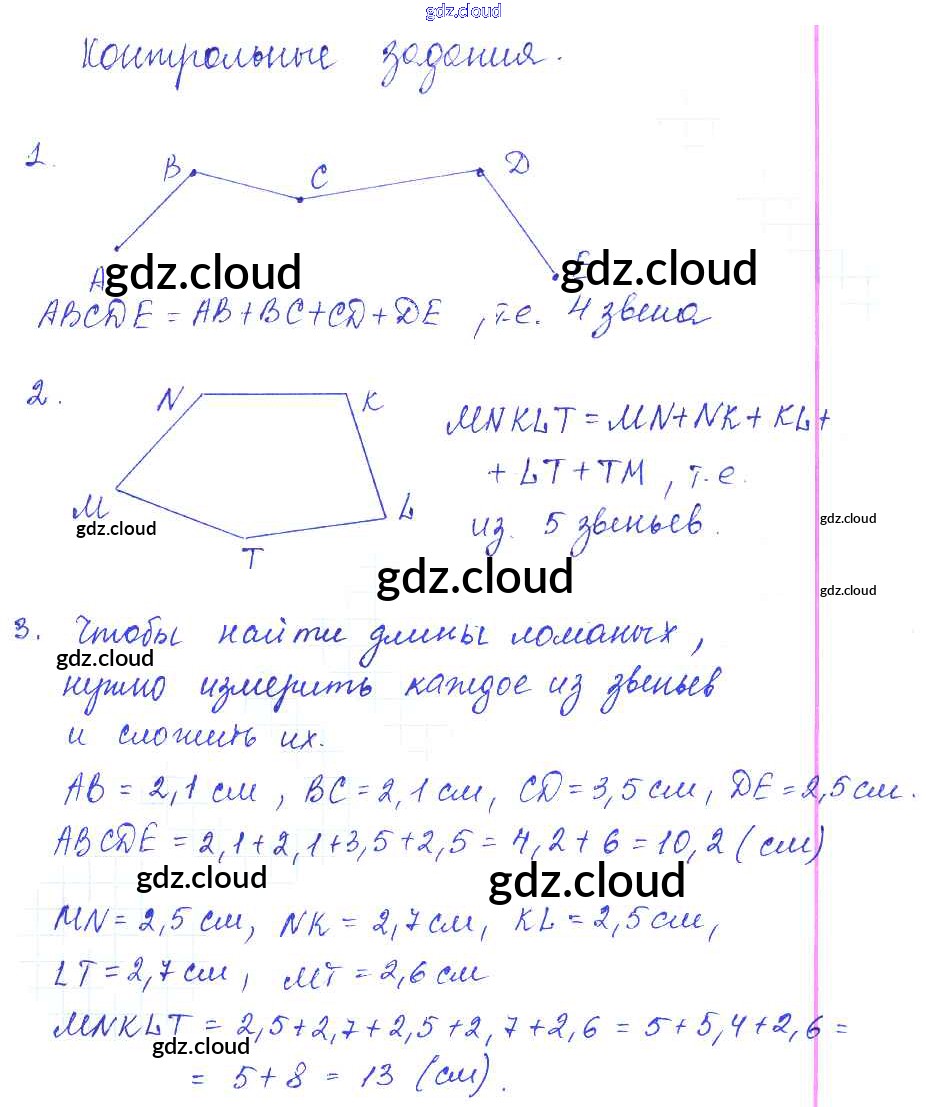 gdz.cloud
Контрольные задания.
1.
B
C
D
A
E
gdz.cloud
gdz.cloud
ABCDE = AB+BC+CD+DE, т.е. 4 звена
2.
N
K
M
L
T
gdz.cloud
MNKLT = MN+NK+KL+
+ LT+TM, т.е.
из 5 звеньев.
gdz.cloud
gdz.cloud
gdz.cloud
3. Чтобы найти длины ломаных,
gdz.cloud
нужно измерить каждое из звеньев
и сложить их.
AB = 2,1 см, BC = 2,1 см, CD = 3,5 см, DE = 2,5 см.
ABCDE = 2,1+2,1+3,5+2,5 = 4,2+6 = 10,2 (см)
gdz.cloud
gdz.cloud
MN = 2,5 см, NK = 2,7 см, KL = 2,5 см,
LT = 2,7 см, MT = 2,6 см
MNKLT = 2,5+2,7+2,5+2,7+2,6 = 5+5,4+2,6 =
gdz.cloud
= 5+8 = 13 (см).